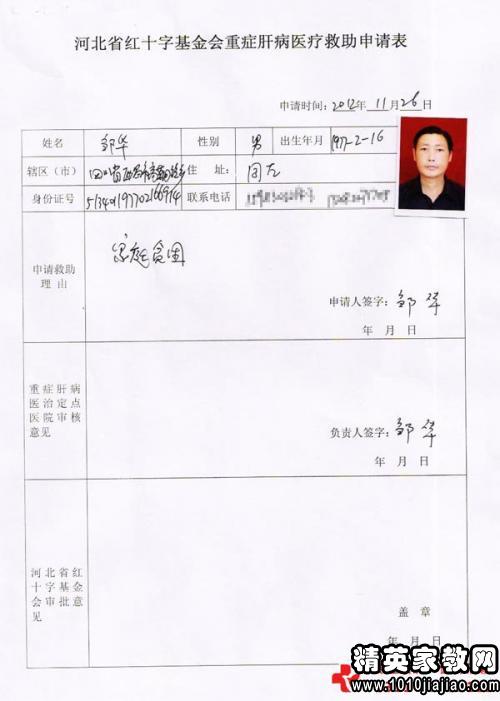 河北省红十字基金会重症肝病医疗救助申请表
申请时间：2012年11月26日
姓名 邹华 性别 男 出生年月 1977-2-16
辖区（市） 四川省 住址： 同左
身份证号 联系电话
申请救助理由 家庭贫困
申请人签字：邹华
年 月 日
重症肝病
医治定点
医院审核
意见
负责人签字：邹华
年 月 日
河北省红
十字基金
会审批意
见
盖章
年 月 日
精英家教网
www.1010jiajiao.com